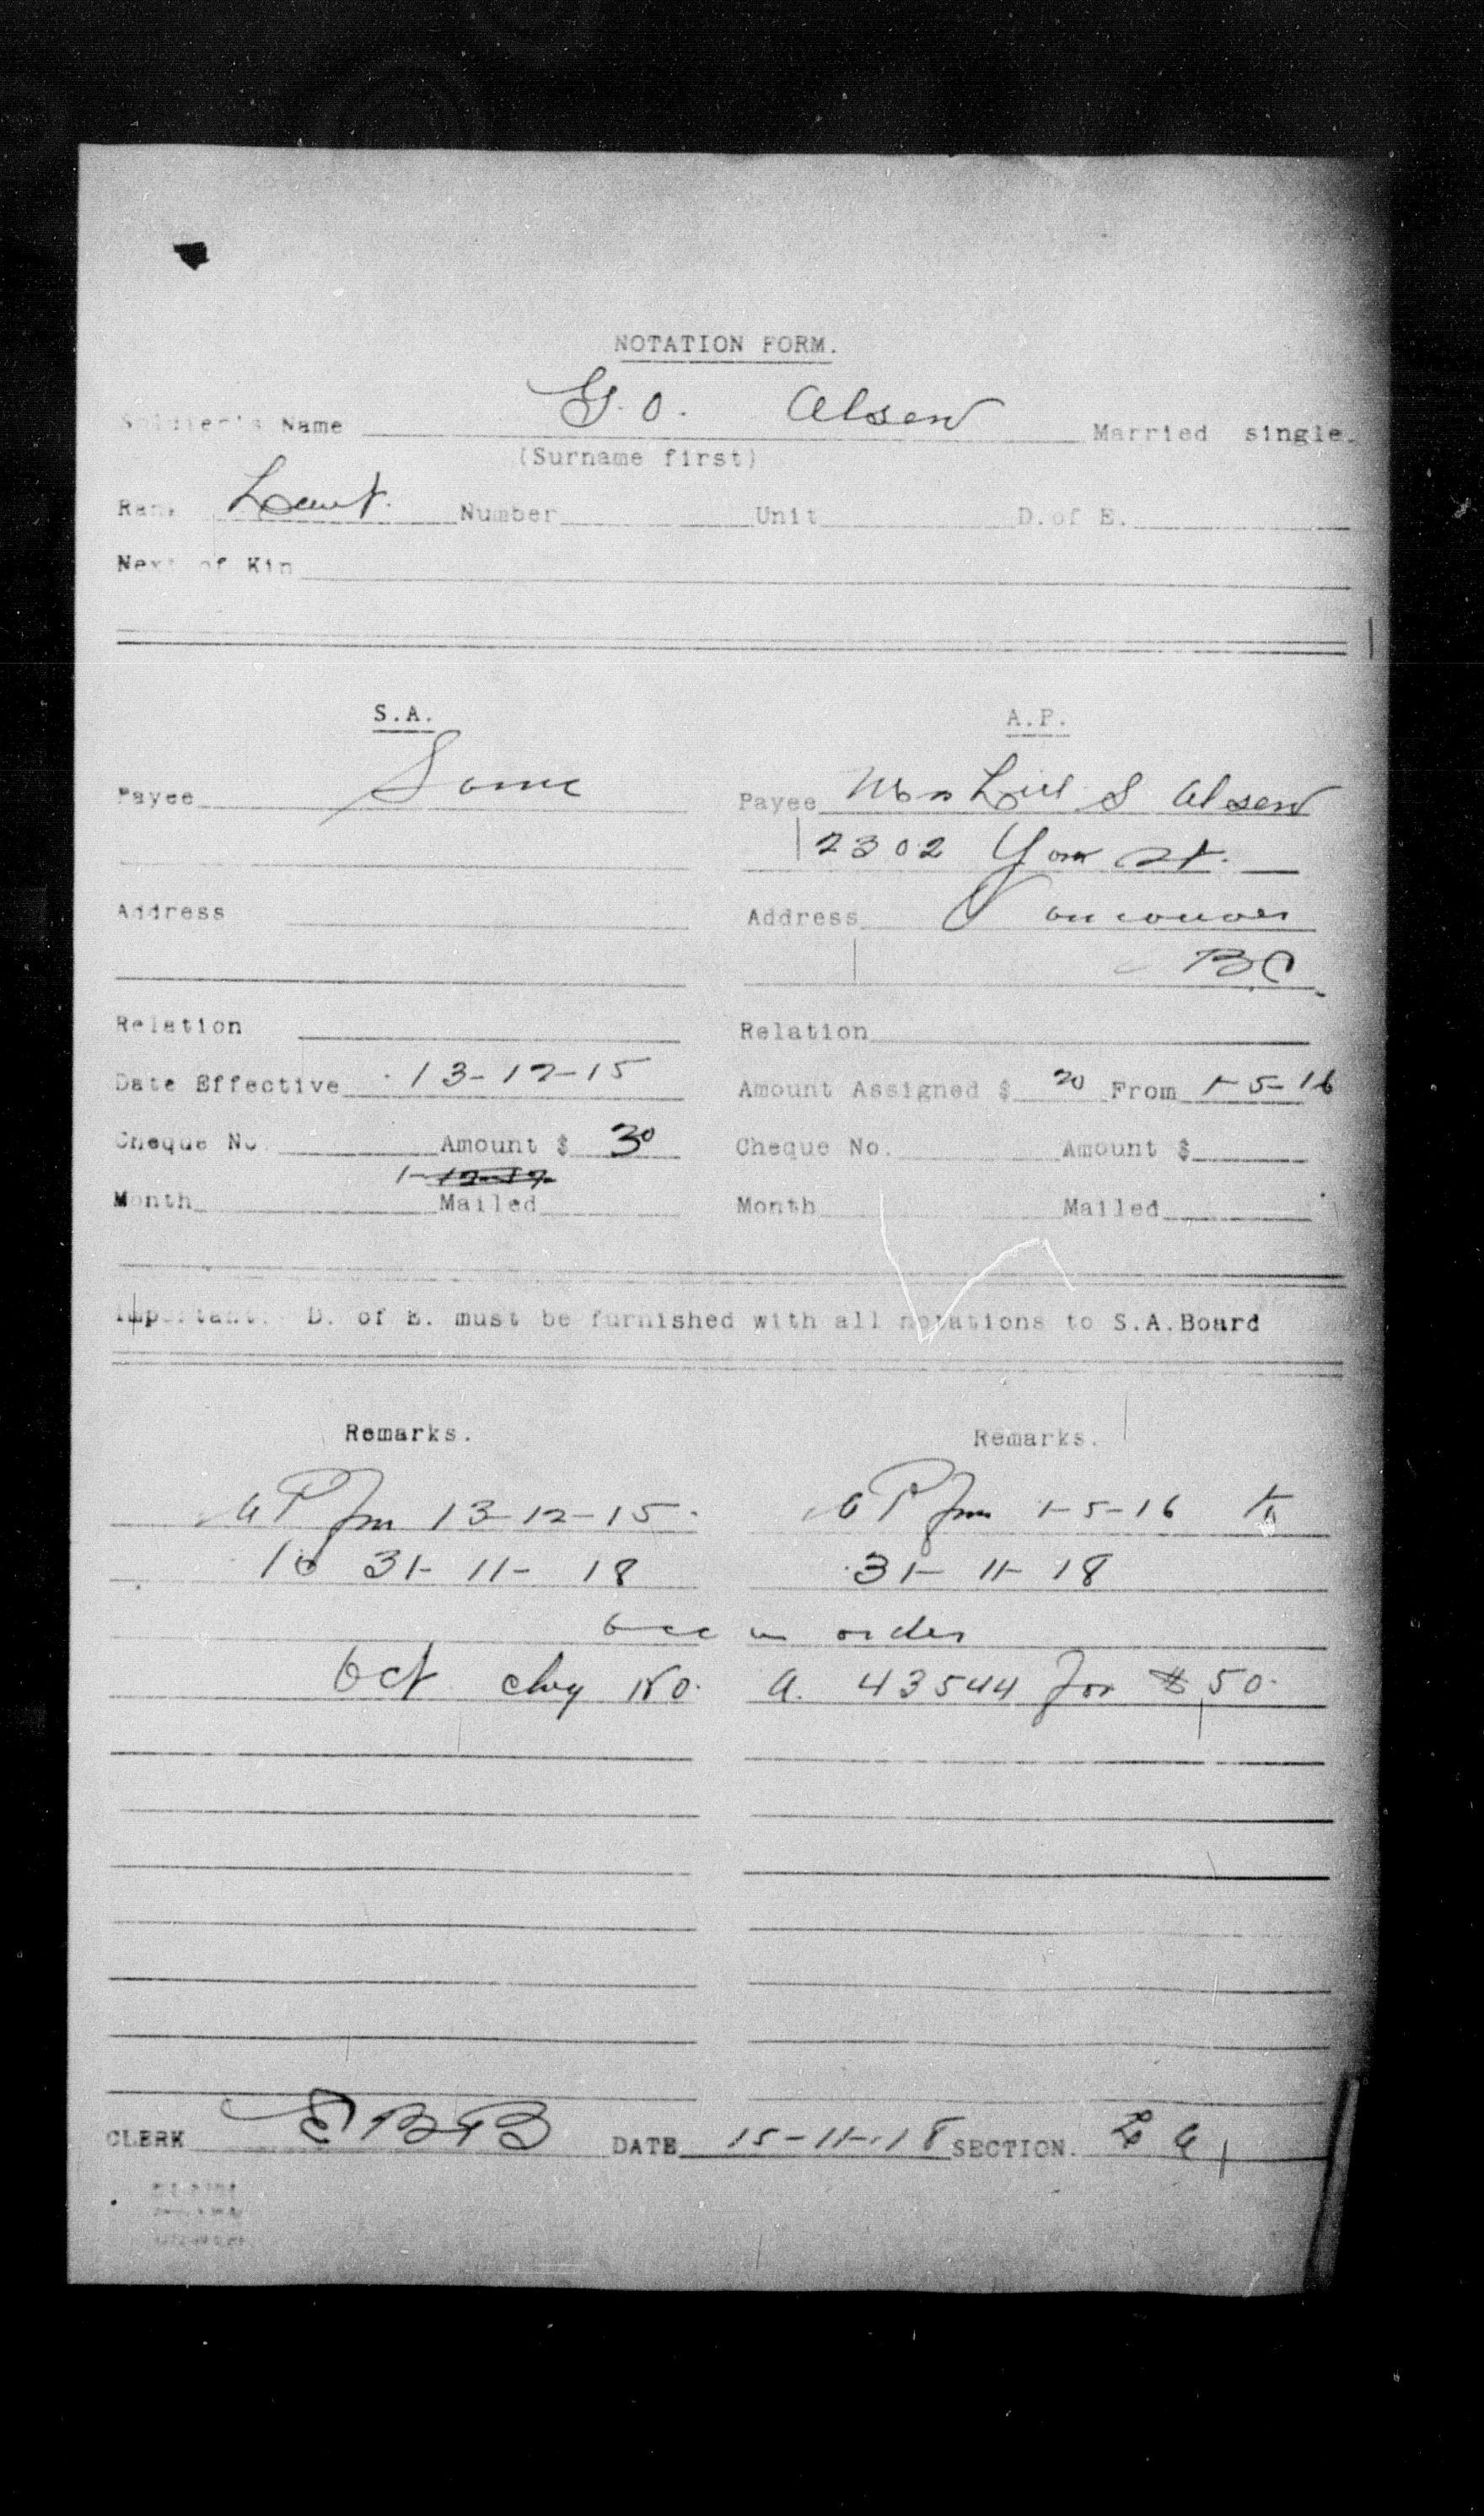 NOTATION FORM.
Soldier's Name G.O. Olsen Married single.
(Surname first)
Rank Lieut. Number Unit D.of E.
Next of Kin
S.A. A.P.
Payee Same Payee Mrs S Olsen
2302 York St.
Address Address Vancouver
BC
Relation Relation
Date Effective 13-12-15 Amount Assigned $ 20 From 1-5-16
Cheque No. Amount $ 30 Cheque No. Amount $
1-12-17
Month Mailed Month Mailed
Important. D. of E. must be furnished with all notations to S.A.Board
Remarks. Remarks.
13-12-15. 1-5-16 to
to 31-11-18 31-11-18
in order
Oct chq No. A. 43544 for $50.
CLERK EBB DATE 15-11-18 SECTION.